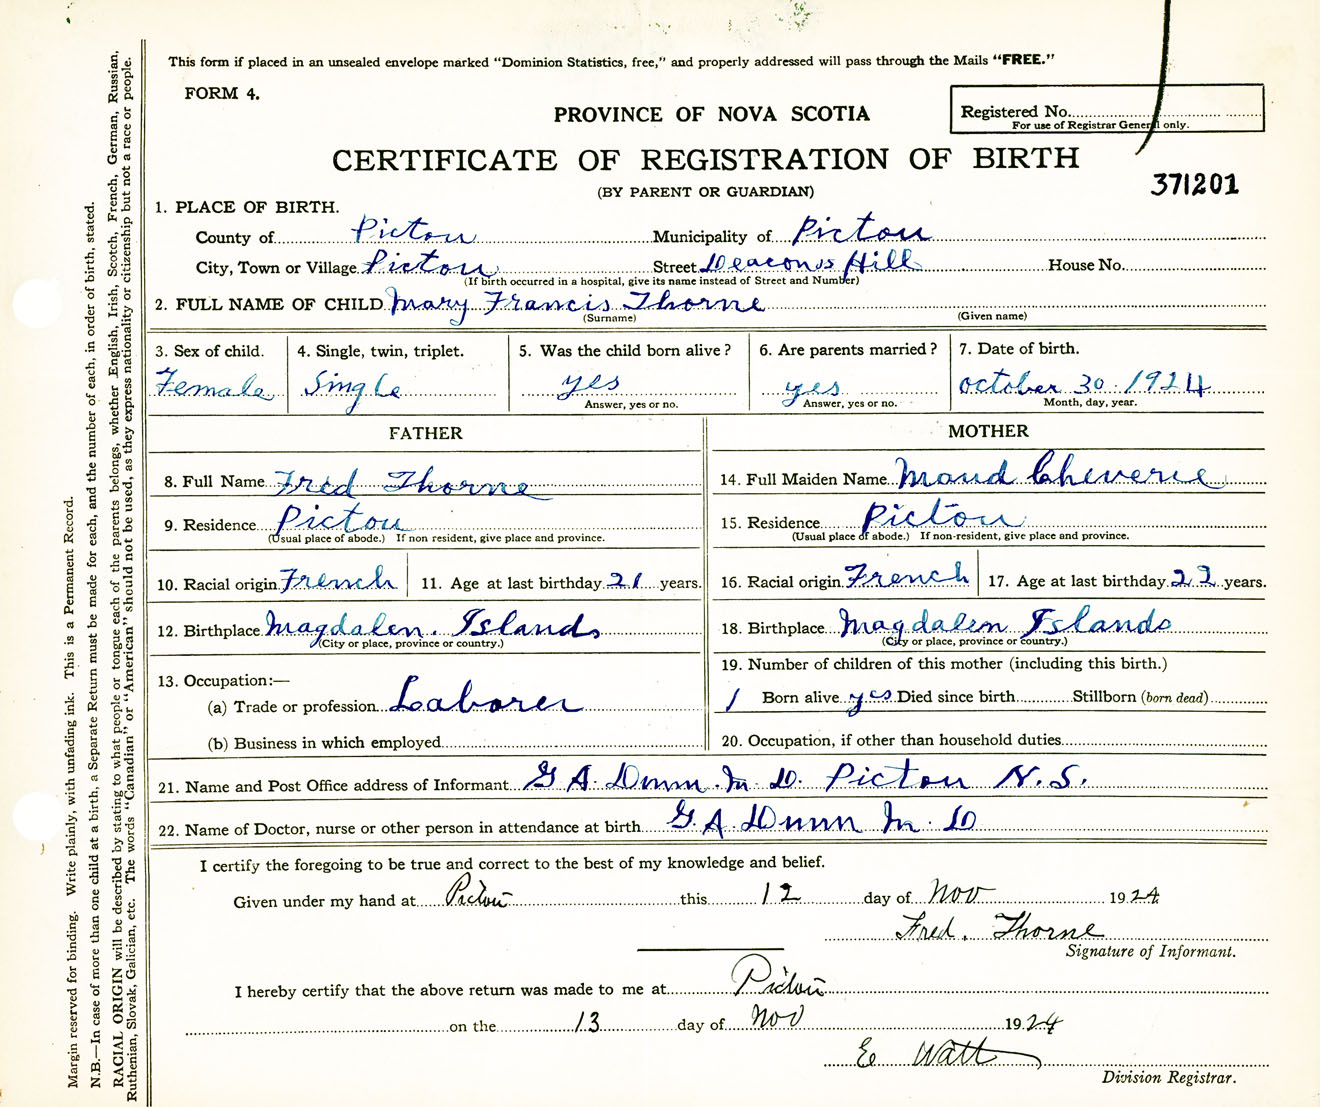 This form if placed in an unsealed envelope marked “Dominion Statistics, free,” and properly addressed will pass through the Mails “FREE.”
FORM 4.
PROVINCE OF NOVA SCOTIA
Registered No.
For use of Registrar General only.
CERTIFICATE OF REGISTRATION OF BIRTH
371201
(BY PARENT OR GUARDIAN)
1. PLACE OF BIRTH.
County of Pictou Municipality of Pictou
City, Town or Village Pictou Street Deacons Hill House No.
(If birth occurred in a hospital, give its name instead of Street and Number)
2. FULL NAME OF CHILD Mary Francis Thorne
(Surname) (Given name)
3. Sex of child. 4. Single, twin, triplet. 5. Was the child born alive? 6. Are parents married? 7. Date of birth.
Female Single yes yes october 30 1924
Answer, yes or no. Answer, yes or no. Month, day, year.
FATHER MOTHER
8. Full Name Fred Thorne 14. Full Maiden Name Maud Cheverie
9. Residence Pictou 15. Residence Pictou
(Usual place of abode.) If non resident, give place and province. (Usual place of abode.) If non-resident, give place and province.
10. Racial origin French 11. Age at last birthday 21 years. 16. Racial origin French 17. Age at last birthday 22 years.
12. Birthplace Magdalen. Islands 18. Birthplace Magdalen Islands
(City or place, province or country.) (City or place, province or country.)
13. Occupation:— 19. Number of children of this mother (including this birth.)
(a) Trade or profession Laborer 1 Born alive yes Died since birth Stillborn (born dead)
(b) Business in which employed 20. Occupation, if other than household duties
21. Name and Post Office address of Informant G A. Dunn. M D. Pictou N.S.
22. Name of Doctor, nurse or other person in attendance at birth G. A. Dunn M. D
I certify the foregoing to be true and correct to the best of my knowledge and belief.
Given under my hand at Pictou this 12 day of Nov 1924
Fred. Thorne
Signature of Informant.
I hereby certify that the above return was made to me at Pictou
on the 13 day of Nov 1924
E Watt
Division Registrar.
Margin reserved for binding. Write plainly, with unfading ink. This is a Permanent Record.
N.B.—In case of more than one child at a birth, a Separate Return must be made for each, and the number of each, in order of birth, stated.
RACIAL ORIGIN will be described by stating to what people or tongue each of the parents belongs, whether English, Irish, Scotch, French, German, Russian,
Ruthenian, Slovak, Galician, etc. The words “Canadian” or “American” should not be used, as they express nationality or citizenship but not a race or people.